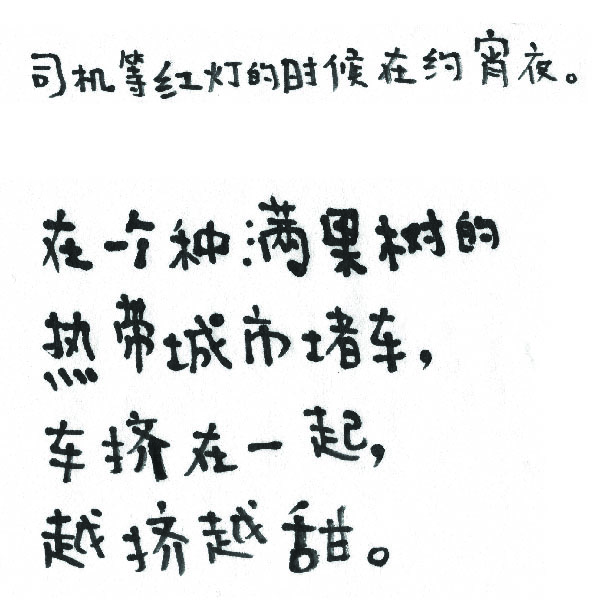 司机等红灯的时候在约宵夜。
在一个种满果树的
热带城市堵车，
车挤在一起，
越挤越甜。